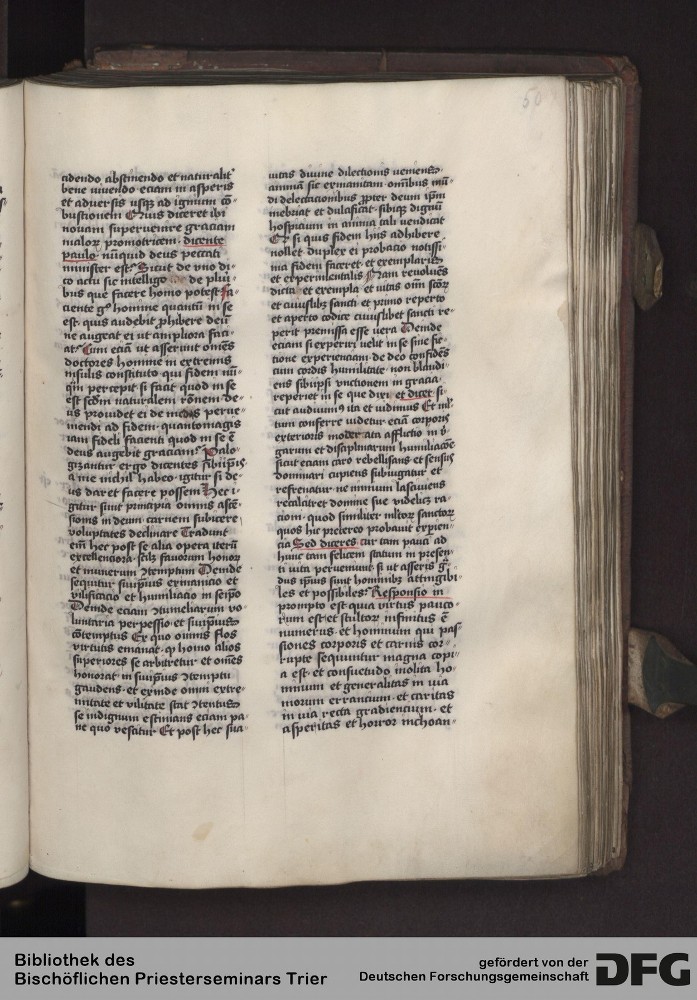 50
cidendo abstinendo et naturalit᷑
bene viuendo eciam in asperis
et aduersis usqꝫ ad ignium cō-
bustionem Cuius diceret ibi
nouam superuenire graciam
malorꝫ promotricem dicente
paulo nūquid deus peccati
minister est Sicut de vno di-
co actu sic intelligo de pluri-
bus que facere homo potest fa-
ciente gͦ homine quantū in se
est quis audebit ꝓhibere deū
ne augeat ei ut ampliora faci-
at Cum eciā ut asserunt om̄es
doctores homine in extremis
insulis constituto qui fidem nū-
q̄m percepit si facit quod in se
est scd̄m naturalem rōnem de-
us prouidet ei de medijs perue-
niendi ad fidem quantomagis
iam fideli facienti quod in se ē
deus augebit graciam Palo-
gizantur ergo dicentes sibiip̄is
a me nichil habeo igitur si de-
us daret facere possem Hec i-
gitur sunt principia om̄is ascē-
sionis in deum carnem subicere
voluptates declinare Tradunt
em̄ hec post se alia opera iterū
excellenciora scilꝫ fauorum honorꝫ
et munerum ꝯtemptum Deinde
sequitur suiip̄ius exinanicio et
vilificacio et humiliacio in seip̄o
Deinde eciam ꝯtumeliarum vo-
luntaria perpessio et suiip̄ius
cōtemptus Ex quo om̄is flos
virtutis emanat qꝫ homo alios
superiores se arbitretur et om̄es
honorat in suiip̄ius ꝯtemptu
gaudens et exinde omni extre-
mitate et vilitate stat ꝯtentus
se indignum estimans eciam pa-
ne quo vescatur Et post hec sua-
uitas diuine dilectionis veniens
animā sic exinanitam om̄ibus mū-
di delectacionibus ꝓpter deum ip̄m
inebriat et dulcificat sibiqꝫ dignū
hospitium in anima tali vendicat
Et si quis fidem hijs adhibere
nollet duplex ei probacio notissi-
ma fidem faceret et exemplaris
et experimentalis Nam reuoluens
dicta et exempla et vitas om̄i sc̄orꝫ
et cuiuslibꝫ sancti et primo reperto
et aperto codice cuiuslibet sancti re-
periet premissa esse vera Deinde
eciam si experiri uelit in se sine fic-
tione experienciam de deo confidēs
cum cordis humilitate non blandi-
ens sibiip̄si vnctionem in gracia
reperiet in se que dixi et dicet si-
cut audiuimꝰ ita et vidimus Et ml̄-
tum conferre videtur eciā corporis
exterioris moderata afflictio in vi-
garum et disciplinarum humiliacōe
sicut eciam caro rebellisans et sensus
dominari cupiens subiugatur et
refrenatur ne nimium lasciuiens
recalcitret domine sue videlicꝫ ra-
cioni quod similiter ml̄torꝫ sanctorꝫ
quos hic pretereo probauit experien-
cia Sed diceres cur tam pauci ad
hunc tam felicem statum in presen-
ti vita perueniunt si ut asseris gͣ-
dus ip̄ius sunt hominibꝫ attingibi-
les et possibiles Responsio in
prompto est quia virtus pauco-
rum est et stultorꝫ infinitus ē
numerus et hominum qui pas-
siones corporis et carnis cor-
rupte sequuntur magna copi-
a est et consuetudo inolita ho-
minum et generalitas in via
morum errancium et caritas
in via recta gradiencium et
asperitas et horror inchoan-
Bibliothek des
Bischöflichen Priesterseminars Trier
gefördert von der
Deutschen Forschungsgemeinschaft
DFG